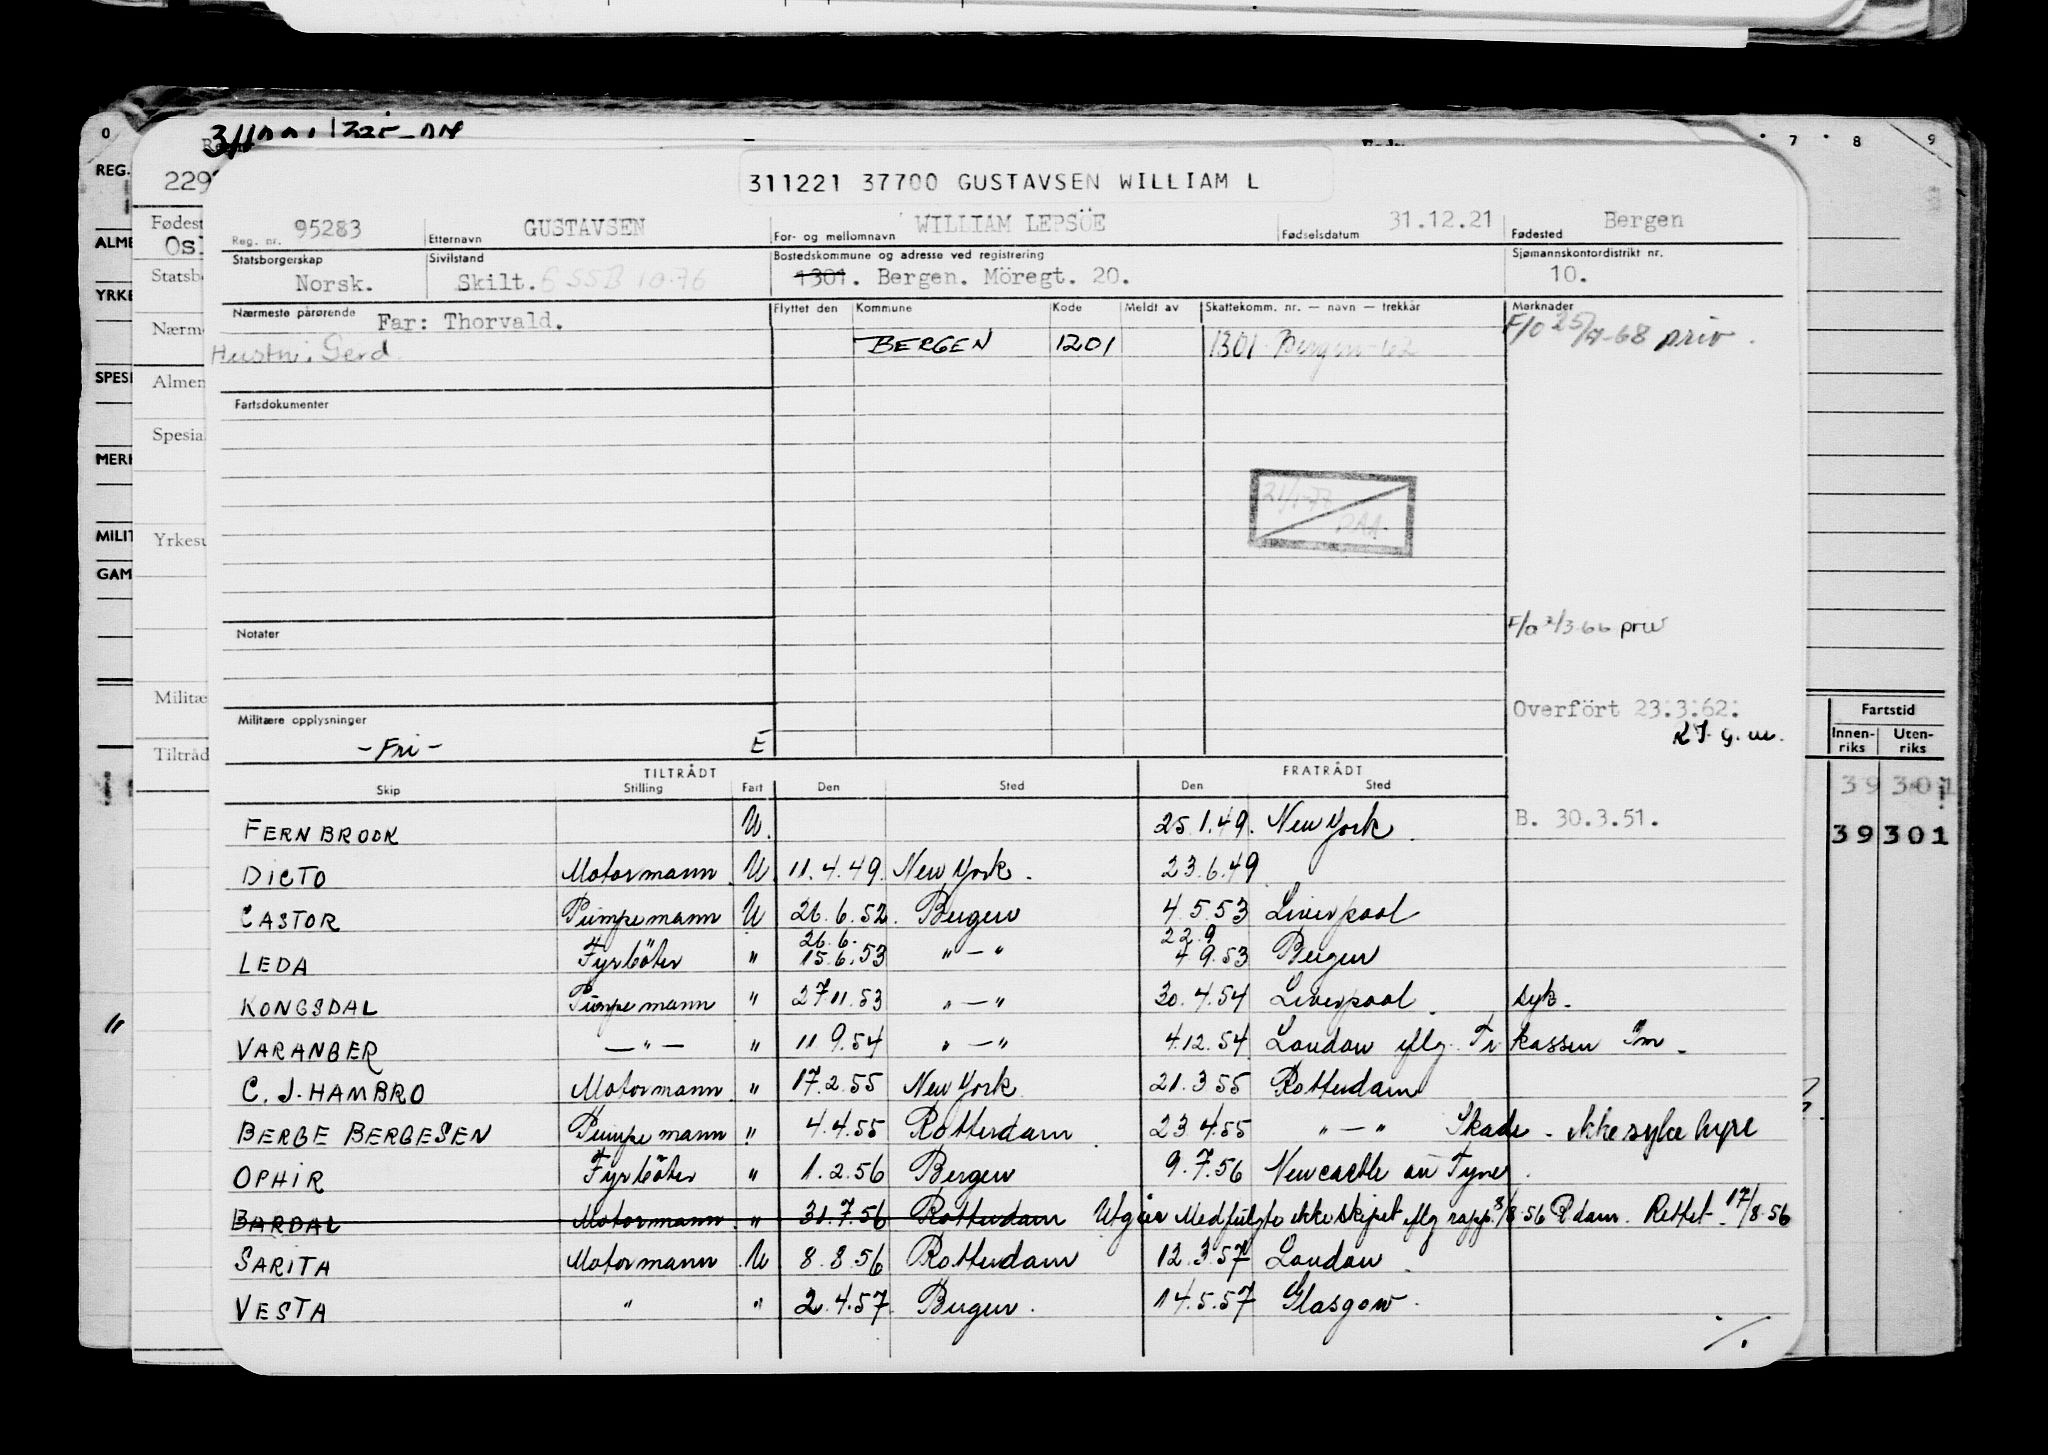 0 7 8 9
REG.
229
311221 37700 GUSTAVSEN WILLIAM L
95283 GUSTAVSEN WILLIAM LEPSÖE 31.12.21 Bergen
Reg. nr. Etternavn For- og mellomnavn Fødselsdatum Fødested
Fødest
Osl
ALME
Statsborgerskap Sivilstand Bostedskommune og adresse ved registrering Sjømannskontordistrikt nr.
Norsk. Skilt. 1301. Bergen. Möregt. 20. 10.
Statsb
YRKE
Nærmeste pårørende Flyttet den Kommune Kode Meldt av Skattekomm. nr. — navn — trekkår Merknader
Far: Thorvald.
Nærm
Hustru: Gerd BERGEN 1201 1301 Bergen-62 F/o 25/9-68 priv.
SPESI
Almen
Fartsdokumenter
Spesial
MERK
21/1-77
MILIT
Yrkesu
GAM
Notater F/o 2/3-66 priv
Militæ
Overfört 23.3.62.
Militære opplysninger
- Fri - E
Fartstid
Innen-riks Uten-riks
Tiltråd
TILTRÅDT FRATRÅDT
Skip Stilling Fart Den Sted Den Sted
39 301
FERNBROOK U. 25.1.49. New York. B. 30.3.51.
39 301
DICTO Motormann U. 11.4.49. New York. 23.6.49
CASTOR Pumpemann U 26.6.52. Bergen 4.5.53 Liverpool
26.6. 22.9
LEDA Fyrböter " 15.6.53 " — " 4 9.53 Bergen
KONGSDAL Pumpemann " 27.11.53 " — " 30.4.54 Liverpool. syk.
VARANGER — " — " 11 9.54 " — " 4.12.54 London iflg. Tr kassen
C. J. HAMBRO Motormann " 17.2.55 New York 21.3.55 Rotterdam
BERGE BERGESEN Pumpemann " 4.4.55 Rotterdam 23.4.55 " — " Skade - ikke syke hyre
OPHIR Fyrböter " 1.2.56 Bergen 9.7.56 Newcastle on Tyne.
BARDAL Motormann " 31.7.56 Rotterdam Utgår Medfulgte ikke skipet iflg rapp. 8/8 56 R'dam. Rettet 17/8-56
SARITA Motormann U 8.8.56 Rotterdam 12.3.57 London
VESTA " " 2.4.57 Bergen. 14.5.57 Glasgow.